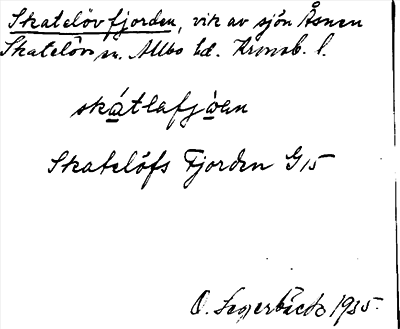 Skatelövfjorden, vik av sjön Åsnen
Skatelöv sn. Allbo hd. Kronob. l.
skátlafjòan
Skatelöfs Fjorden G15
O. 1935.